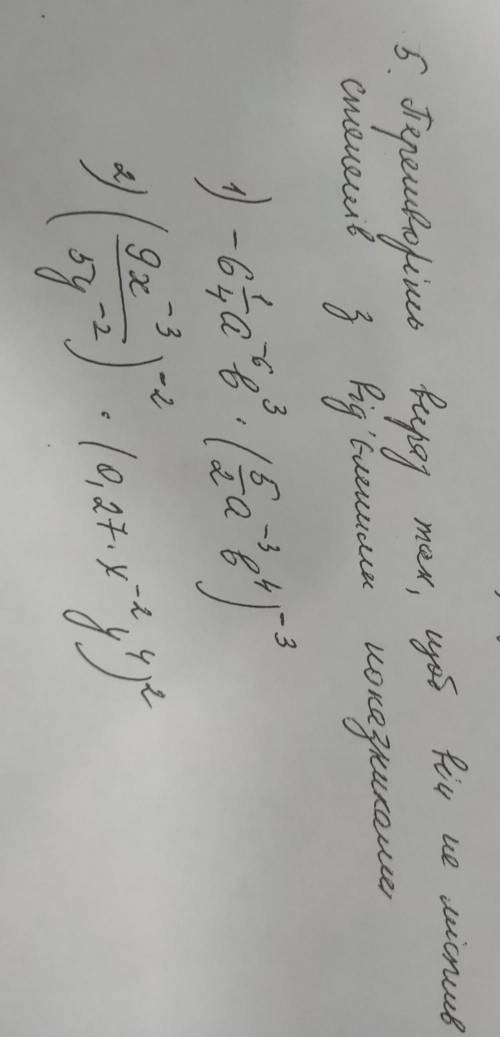 5. Перетворіть вираз так, щоб він не містив
степенів з від'ємними показниками
1) -6 1/4 a⁻⁶ b³ · (5/2 a⁻³ b⁴)⁻³
2) (9x⁻³ / 5y⁻²)⁻² · (0,27 · x⁻² y⁴)²